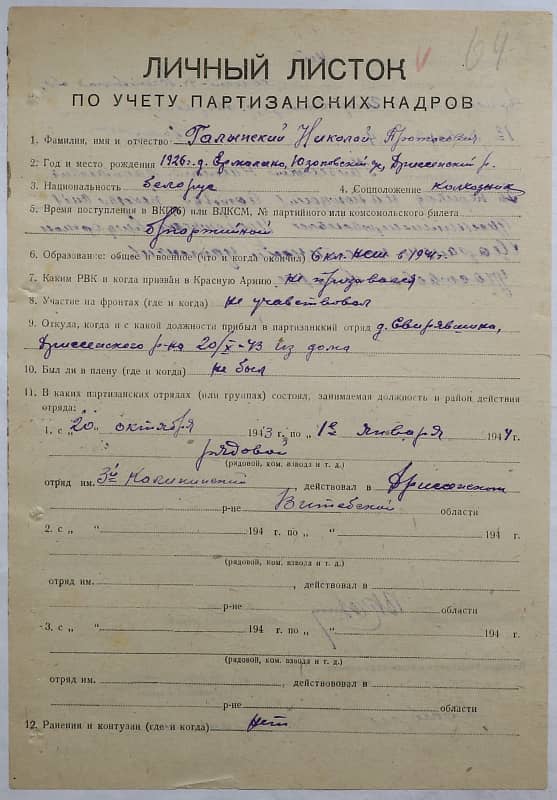 64
ЛИЧНЫЙ ЛИСТОК
ПО УЧЕТУ ПАРТИЗАНСКИХ КАДРОВ
1. Фамилия, имя и отчество Галынский Николай
2. Год и место рождения 1926 г. д. Дриссенский р.
3. Национальность белорус 4. Соцположение колхозник
5. Время поступления в ВКП(б) или ВЛКСМ, № партийного или комсомольского билета
б/партийной
6. Образование: общее и военное (что и когда окончил) 6 кл. НСШ в 1941 г.
7. Каким РВК и когда призван в Красную Армию не призывался
8. Участие на фронтах (где и когда) не участвовал
9. Откуда, когда и с какой должности прибыл в партизанкий отряд д.
Дриссенского р-на 20/X-43 из дома
10. Был ли в плену (где и когда) не был
11. В каких партизанских отрядах (или группах) состоял, занимаемая должность и район действия
отряда:
1. с „20„ октября 1943 г. по „1го января 1944 г.
рядовой
(рядовой, ком. взвода и т. д.)
отряд им. 3й Калининский, действовал в Дриссенском
р-не Витебской области
2. с „ “ 194 г. по „ “ 194 г.
(рядовой, ком. взвода и т. д.)
отряд им. , действовал в
р-не области
3. с „ “ 194 г. по „ “ 194 г.
(рядовой, ком. взвода и т. д.)
отряд им. , действовал в
р-не области
12. Ранения и контузии (где и когда) нет